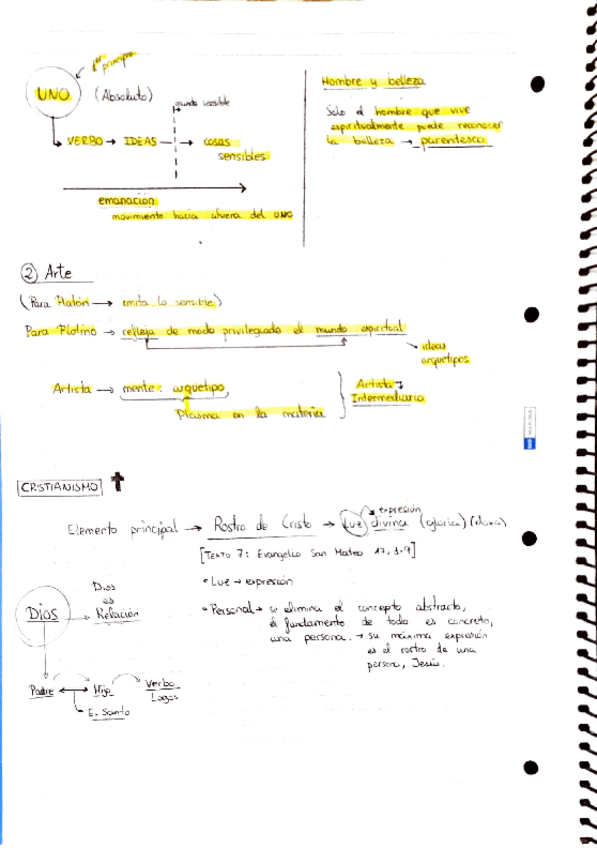 1er principio
UNO (Absoluto)
mundo sensible
VERBO → IDEAS → cosas
sensibles
emanación
movimiento hacia afuera del UNO
Hombre y belleza
Sólo el hombre que vive
espiritualmente puede reconocer
la belleza → parentesco
② Arte
(Para Platón → imita lo sensible)
Para Plotino → refleja de modo privilegiado el mundo espiritual
→ ideas
arquetipos
Artista → mente: arquetipo
Plasma en la materia
Artista
Intermediario
CRISTIANISMO
expresión
Elemento principal → Rostro de Cristo → Luz divina (gloria) (doxa)
[TEXTO 7: Evangelio San Mateo 17, 1-9]
• Luz → expresión
• Personal → se elimina el concepto abstracto,
el fundamento de todo es concreto,
una persona. → su máxima expresión
es el rostro de una
persona, Jesús.
Dios
es
Dios → Relación
Padre ↔ Hijo Verbo
Logos
E. Santo